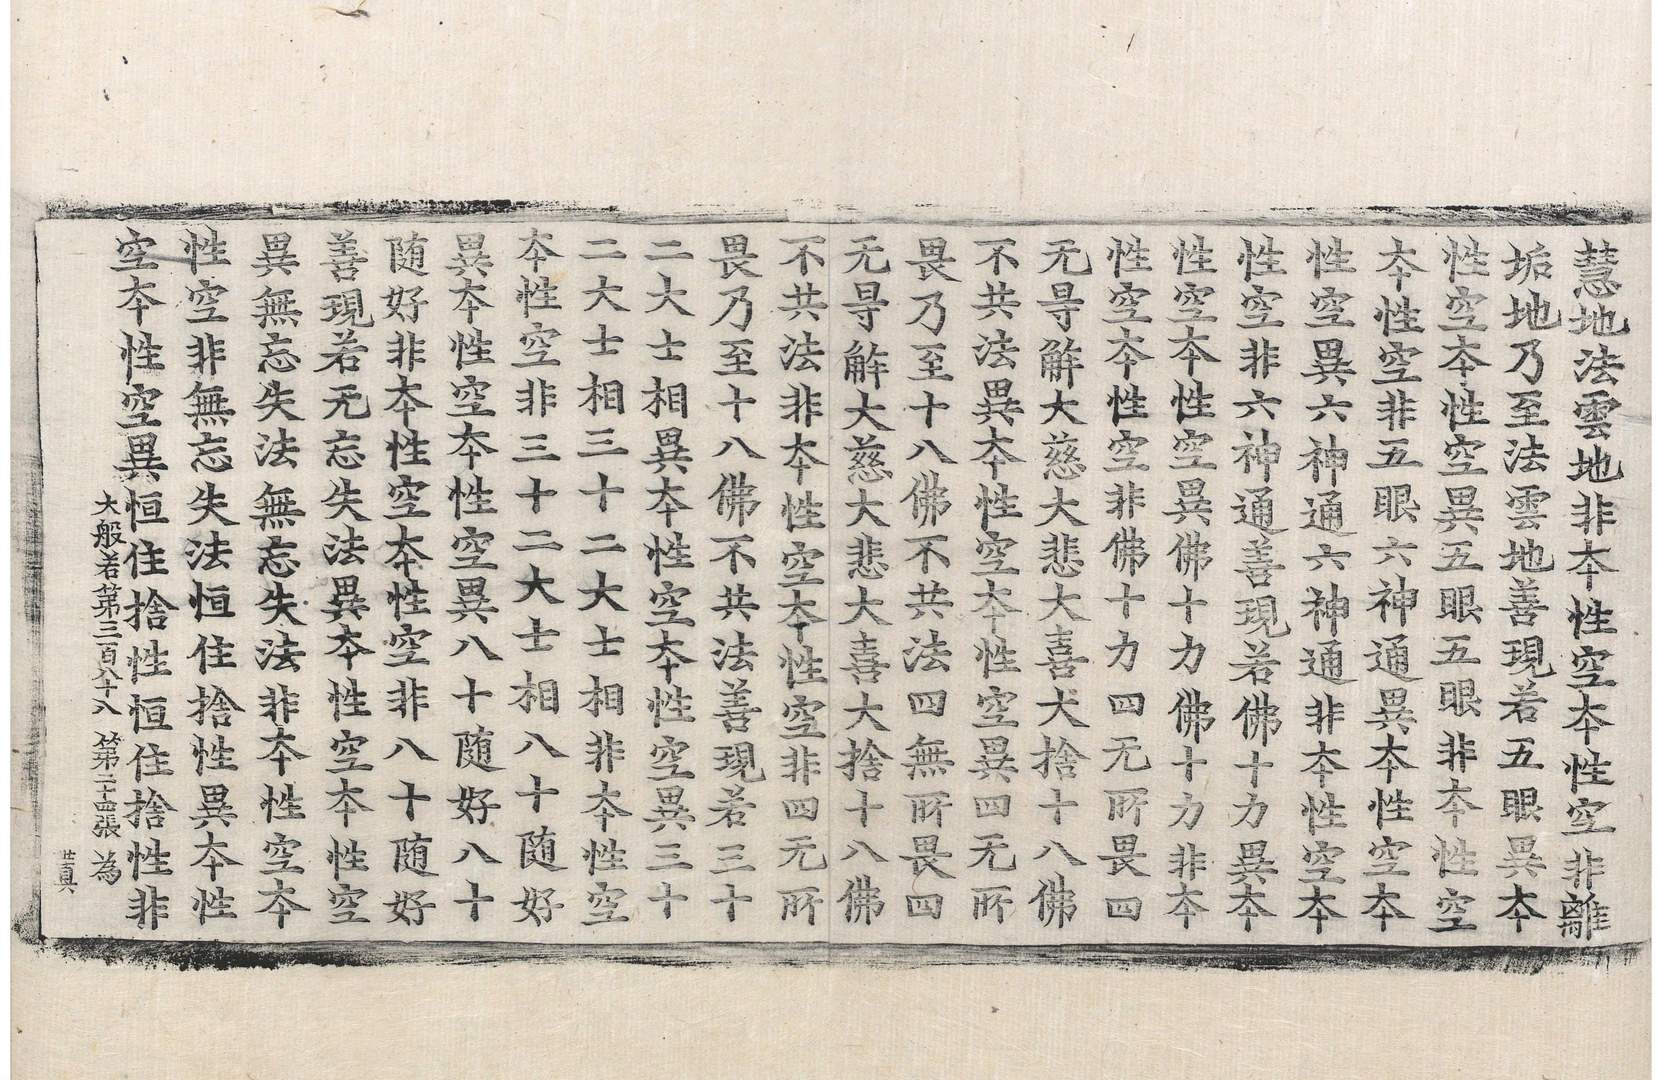 慧地法雲地非夲性空夲性空非離
垢地乃至法雲地善現若五眼異夲
性空夲性空異五眼五眼非夲性空
夲性空非五眼六神通異夲性空夲
性空異六神通六神通非夲性空夲
性空非六神通善現若佛十力異夲
性空夲性空異佛十力佛十力非夲
性空夲性空非佛十力四无所畏四
无㝵解大慈大悲大喜大捨十八佛
不共法異夲性空夲性空異四无所
畏乃至十八佛不共法四無所畏四
无㝵解大慈大悲大喜大捨十八佛
不共法非夲性空夲性空非四无所
畏乃至十八佛不共法善現若三十
二大士相異夲性空夲性空異三十
二大士相三十二大士相非夲性空
夲性空非三十二大士相八十随好
異夲性空夲性空異八十随好八十
随好非夲性空夲性空非八十随好
善現若无忘失法異夲性空夲性空
異無忘失法無忘失法非夲性空夲
性空非無忘失法恒住捨性異夲性
空夲性空異恒住捨性恒住捨性非
大般若第三百八十八 第二十四張 為